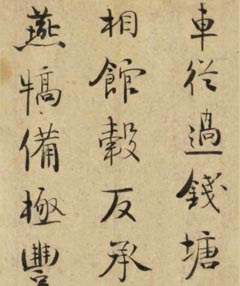 車從過錢塘
相館穀反承
燕犒備極豐